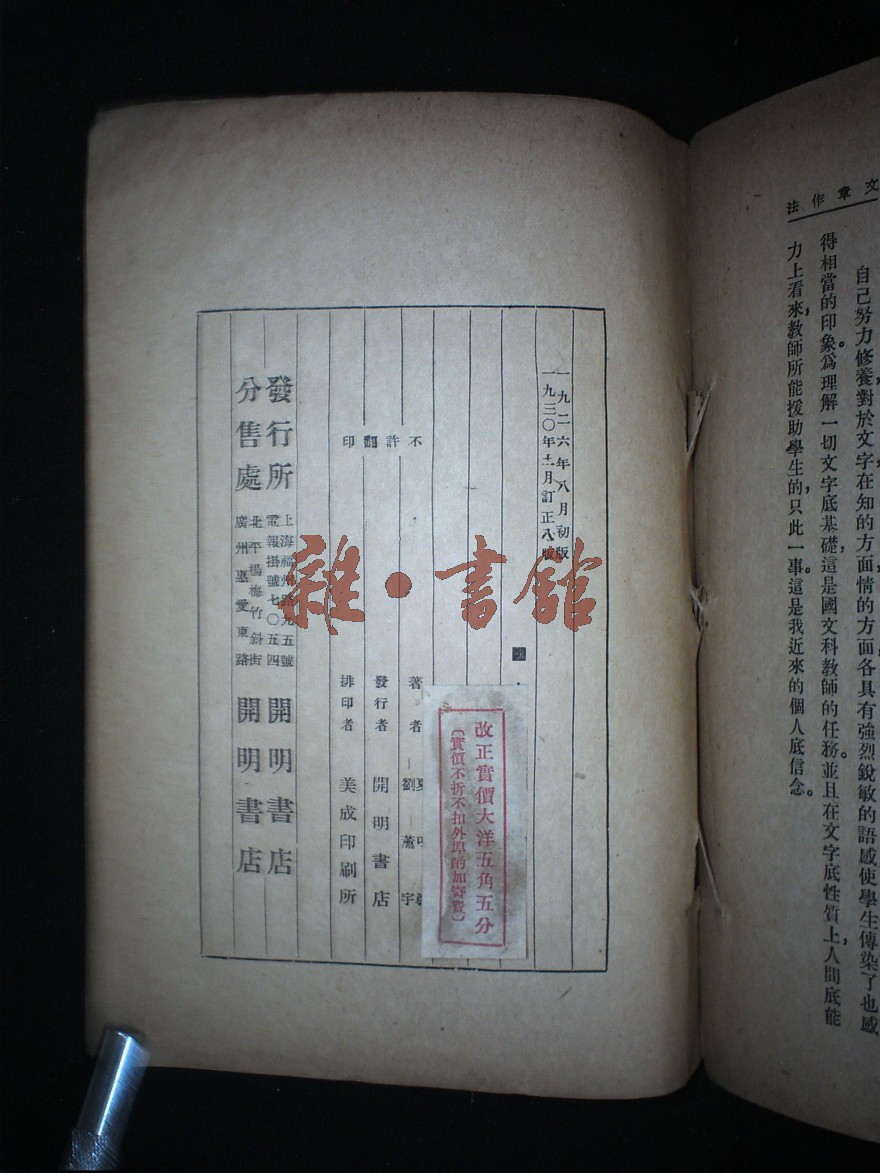 文章作法
自己努力修養，對於文字在知的方面，情的方面，各具有強烈銳敏的語感，使學生傳染了，也感
得相當的印象。爲理解一切文字底基礎，這是國文科教師的任務。並且在文字底性質上，人間底能
力上看來，教師所能援助學生的，只此一事。這是我近來的個人底信念。
一九二六年八月初版
一九三〇年十一月訂正八版
改正實價大洋五角五分
〔實價不折不扣外埠酌加寄費〕
著者
夏
劉薰宇
不許翻印
發行者 開明書店
排印者 美成印刷所
發行所 上海福州路九五號 電報掛號七〇五四 開明書店
分售處 北平楊梅竹斜街 廣州惠愛東路 開明書店
雜·書館